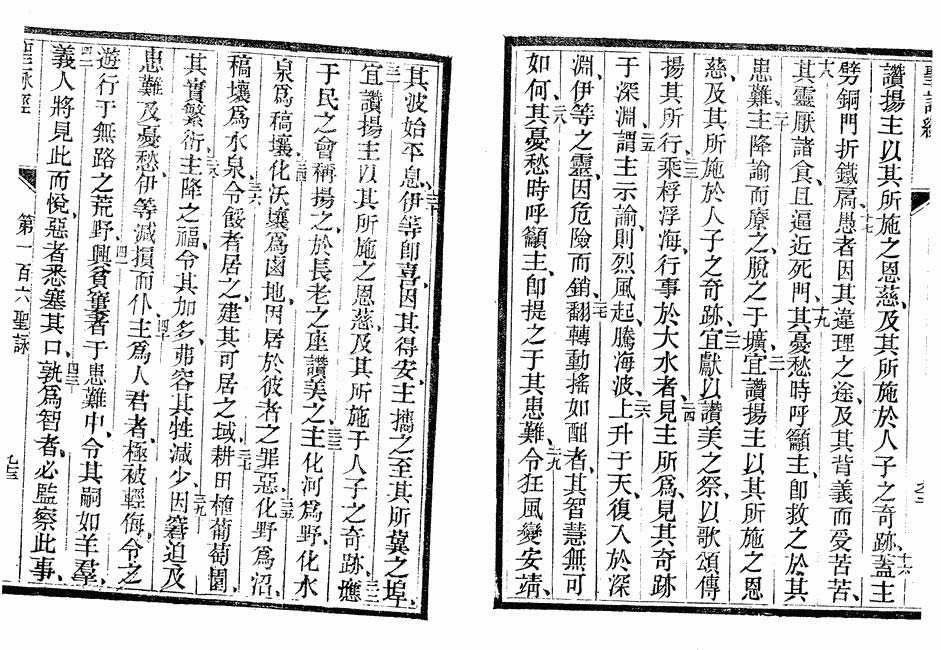 聖詠經
讚揚主以其所施之恩慈、及其所施於人子之奇跡、十六蓋主
劈銅門折鐵扄、十七愚者因其違理之途、及其背義而受苦苦、
十八其靈厭諸食、且逼近死門、十九其憂愁時呼籲主、卽救之於其
患難、二十主降諭而療之、脫之于壙、二一宜讚揚主以其所施之恩
慈、及其所施於人子之奇跡、二二宜獻以讚美之祭、以歌頌傳
揚其所行、二三乘桴浮海、行事於大水者、二四見主所爲、見其奇跡
于深淵、二五謂主示諭、則烈風起、騰海波、二六上升于天、復入於深
淵、伊等之靈、因危險而銷、二七翻轉動搖如酣者、其智慧無可
如何、二八其憂愁時呼籲主、卽提之于其患難、二九令狂風變安靖、
其波始平息、三十伊等卽喜、因其得安、主攜之至其所冀之埠、
三一宜讚揚主以其所施之恩慈、及其所施于人子之奇跡、三二應
于民之會稱揚之、於長老之座讚美之、三三主化河爲野、化水
泉爲槁壤、三四化沃壤爲鹵地、因居於彼者之罪惡、三五化野爲沼、
槁壤爲水泉、三六令餒者居之、建其可居之域、三七耕田植葡萄園、
其實繁衍、三八主降之福、令其加多、弗容其牲減少、三九因窘迫及
患難及憂愁、伊等減損而仆、四十主爲人君者、極被輕侮、令之
遊行于無路之荒野、四一興貧窶者于患難中、令其嗣如羊羣、
四二義人將見此而悅、惡者悉塞其口、四三孰爲智者、必監察此事、
聖詠經
第一百六聖詠
九三